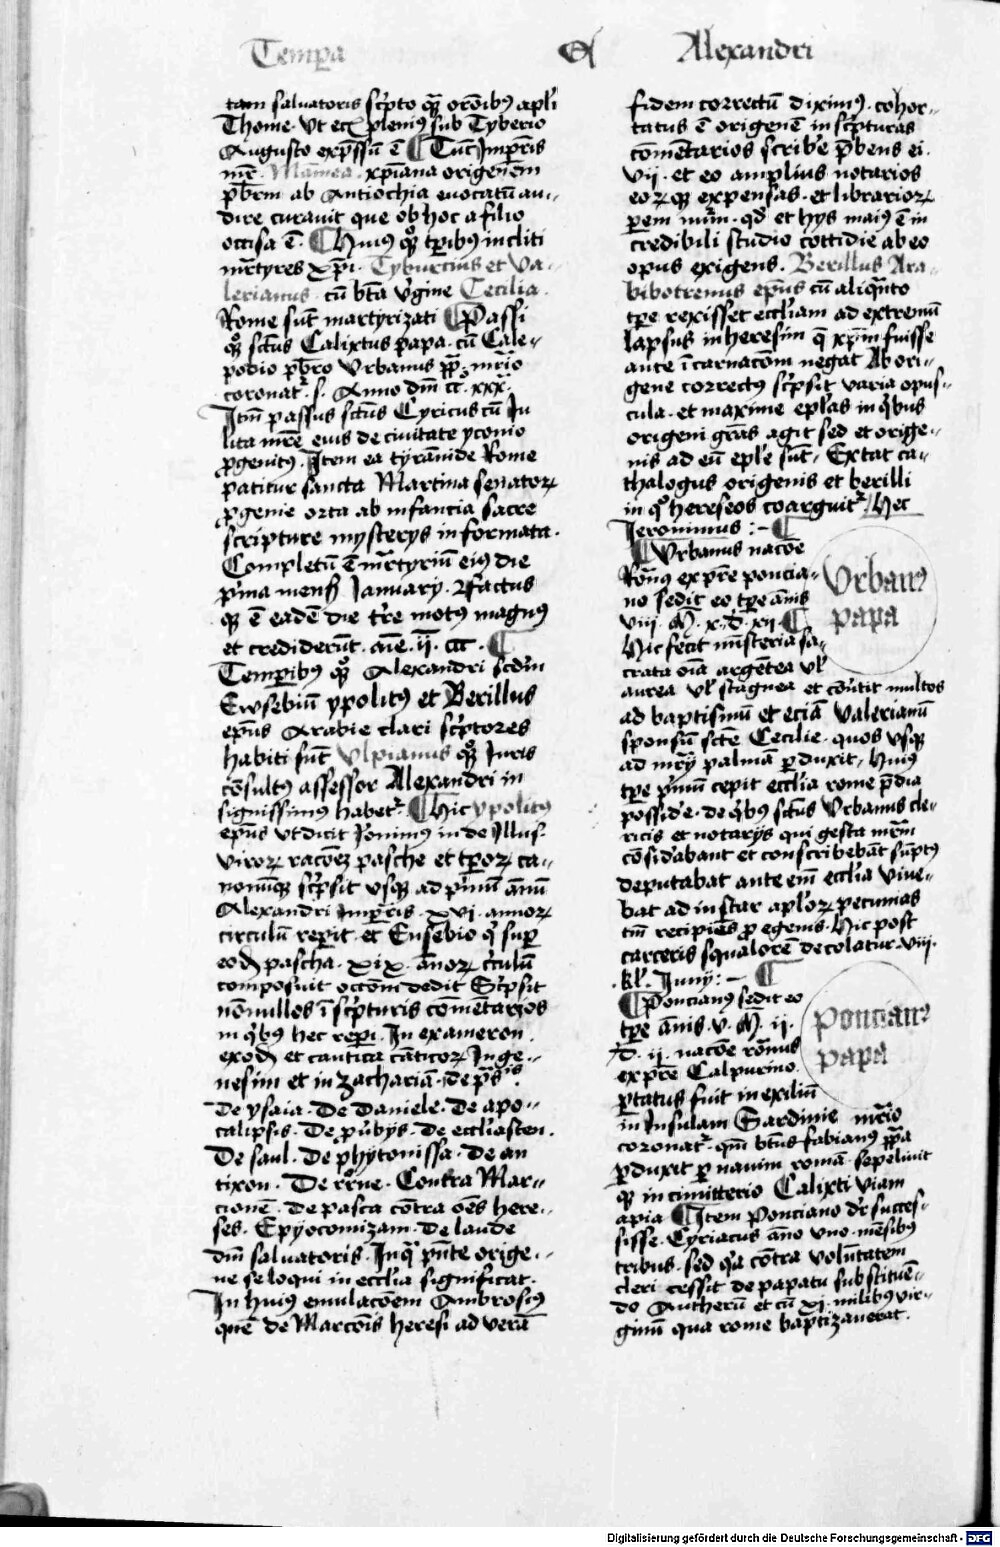 Tempa Alexandri
tam saluatoris sc̄pto qᷓ orōibꝰ apl'i
Thome. Vt ecͥ pleniꝰ sub Tyberio
Augusto exp̄ssū ē Tūc Imꝑr̄is
mr̄e. Mamea. xp̄iana origenem
p̄brm ab Antiochia euocatū au-
dire curauit que ob hoc a filio
occisa ē. Huiꝰ qͦꝫ tꝑibꝰ incliti
mr̄tyres xp̄i. Tyburcius et Va-
lerianus. cū btā v̄gine Cecilia.
Rome sūt martyrizati Passi
qͦꝫ sctūs Calixtus papa. cū Cale-
podio p̄bro Vrbanus pp̄. mr̄io
coronat᷑. s. Anno dm̄ cc. xxx.
Itm̄ passus sctūs Cyricus cū Iu
lita mr̄e eius de ciuitate yconio
ꝓgenitꝰ. Item ea tyrānide Rome
patitur sancta Martina senatoꝝ
ꝓgenie orta ab infantia sacre
scripture mysterys informata.
Completū ē mr̄tyriū eiꝰ die
p̄ma mens̄ Ianuary. Et factus
qꝫ ē eadē die tr̄e motꝰ magnꝰ
et crediderūt. aīe. ij. ccc.
Temꝑibꝰ qͦꝫ Alexandri scd̄m
Ewsebiū ypolitꝰ et Berillus
ep̄us Arabie clari sc̄ptores
habiti sūt Vlpianus qͦꝫ Iuris
cōsultꝰ assessor Alexandri in
signissimus habet᷑. Hic ypolitꝰ
ep̄us vt dicit Ie'onimꝰ in de Illus.
viroꝝ racōeꝫ pasche et tꝑoꝝ ca-
nonūqꝫ sc̄psit vsqꝫ ad p̄mū annū
Alexandri Imꝑr̄is. xvi. annoꝝ
circulū reꝑit. et Eusebio qͥ suꝑ
eod̄ pascha. xix. annoꝝ c̄culū
composuit occōm̄ dedit Sc̄psit
nōnullos ī sc̄pturis cōmētarios
in qͥbꝰ hec reꝑi. In exameron.
exod̄ et cantica cāticoꝝ In ge-
nesim et in zachariā. de ps̄īs.
De ysaia. De Daniele. De apo-
calipsis. De pu̅bys. De eccl'iasten.
De saul. De phytonissa. De an
tixpo. De rr̄ne. Contra Mar-
cionē. De pasca cōtra oēs here-
ses. Epyocomizam. De laude
dm̄ saluatoris. Inqᷓ p̄nte orige-
ne se loqui in ecclīa significat.
In huiꝰ emulacōem Ambrosiꝰ
quē de Marcōis heresi ad verā
fidem correctū diximꝰ. cohor-
tatus ē origenē in sc̄pturas
comētarios scrib'e p̄bens ei.
vij. et eo amplius notarios
eoꝝqꝫ expensas. et librarioꝝ
ꝑem nūm̄. qd̄ et hys maiꝰ ē in
credibili studio cottidie ab eo
opus exigens. Berillus Ara-
bibotrenus ep̄us cū aliqᷓnto
tꝑe rexisset eccl'iam ad extremū
lapsus in heresim q̄ xp̄m fuisse
ante īcarnacōm negat Ab ori-
gene correctꝰ sc̄psit varia opus-
cula. et maxime epl'as in qͥbus
origeni grās agit sed et orige-
nis ad eū epl'e sūt. Extat ca-
thalogus origenis et berilli
in qͦ hereseos coarguit᷑. Hec
Ieronimus:-
Vrbanus nacōe
Rōnus ex p̄re poncia-
no sedit eo tꝑe ānis
viij. M̄. x. d̄. xij.
Hic fecit mīsteria sa-
crata oīa argētea vl'
aurea vl' stagnea et cōu̅tit multos
ad baptismū et eciā Valerianū
sponsū scte̅ Cecilie. quos vsqꝫ
ad mr̄ij palmā ꝑduxit. Huiꝰ
tꝑe p̄mū cepit eccl'ia rome p̄dia
possid'e. de qͥbus sctūs Vrbanus cle-
ricis et notarijs qui gesta mr̄m
cōsid'abant et conscribebāt sūptꝰ
deputabat ante em̄ eccl'ia viue-
bat ad instar apl'oꝝ pecunias
tm̄ recipiēs ꝓ egenis. Hic post
carceris squalorē decolatur. viij.
kl'. Iunij:-
Poncianꝰ sedit eo
tꝑe ānis. v. M̄. ij.
d̄. ij. nacōe rōnus
ex p̄re Calpurino.
ꝑtatus fuit in exiliū
in Insulam Sardinie mr̄io
coronat᷑. quē btūs fabianꝰ pp̄a
ꝑduxit ꝑ nauim romā. sepeliuit
qꝫ in cimitterio Calixti viam
apia Item Ponciano dr̄ succes-
sisse. Cyriacus āno vno. mēsibꝰ
tribus. sed qͥa cōtra volūtatem
cleri cessit de papatu substituē-
do Antherū et cū xi. milibꝰ vir-
ginū qua rome baptizauerat.
Vrbanꝰ
papa
Poncianꝰ
papa
Digitalisierung gefördert durch die Deutsche Forschungsgemeinschaft - DFG